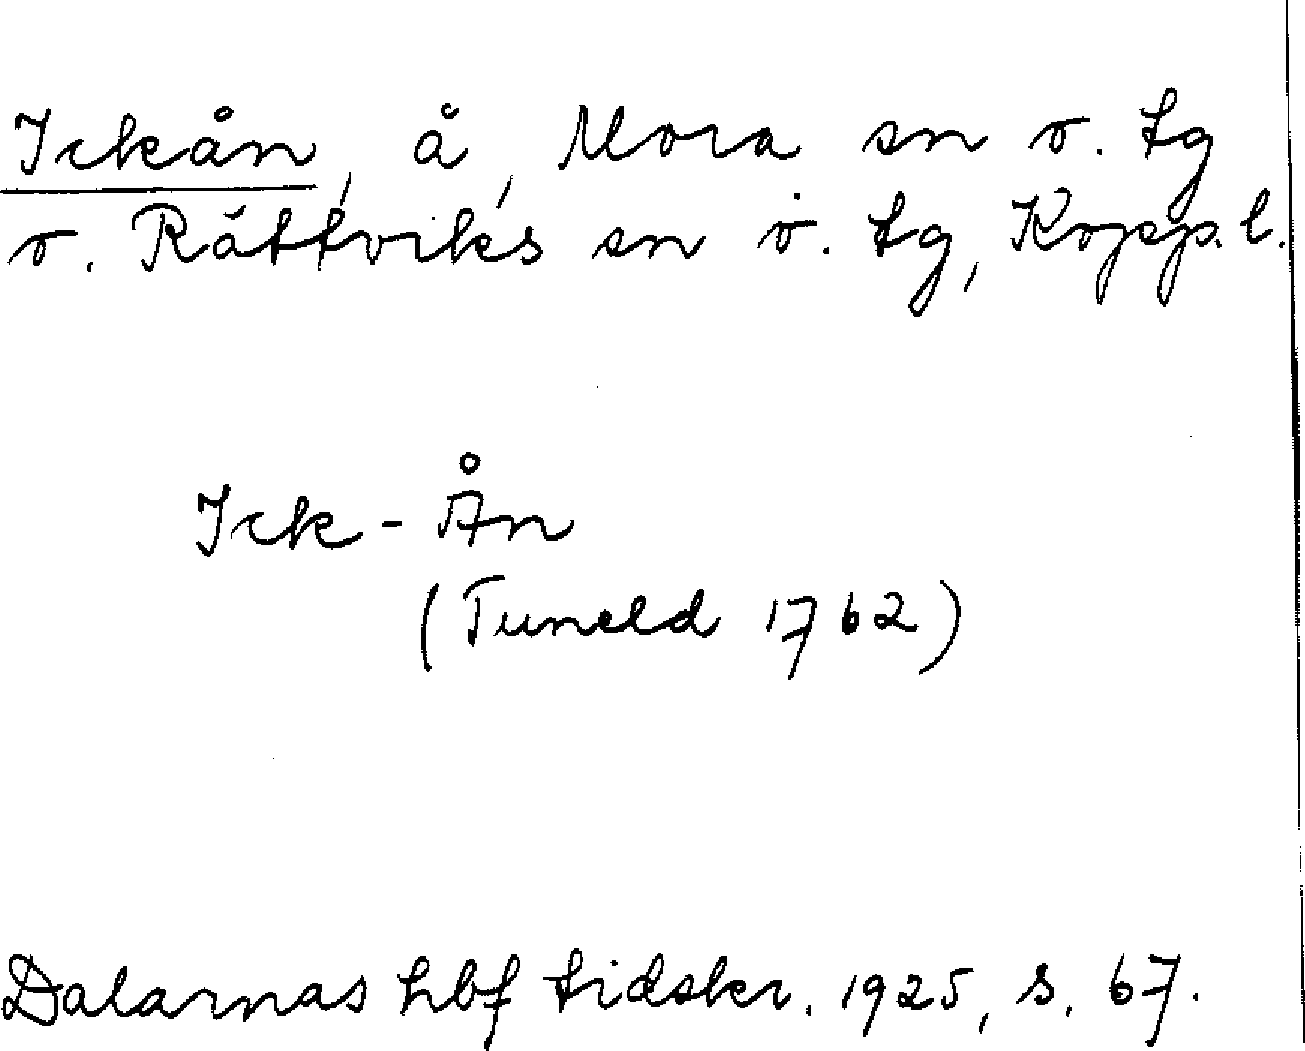 Ickån, å, Mora sn o. tg
o. Rättviks sn o. tg, Kopp. l.
Ick-Ån
(Tuneld 1762)
Dalarnas hbf tidskr. 1925, s. 67.